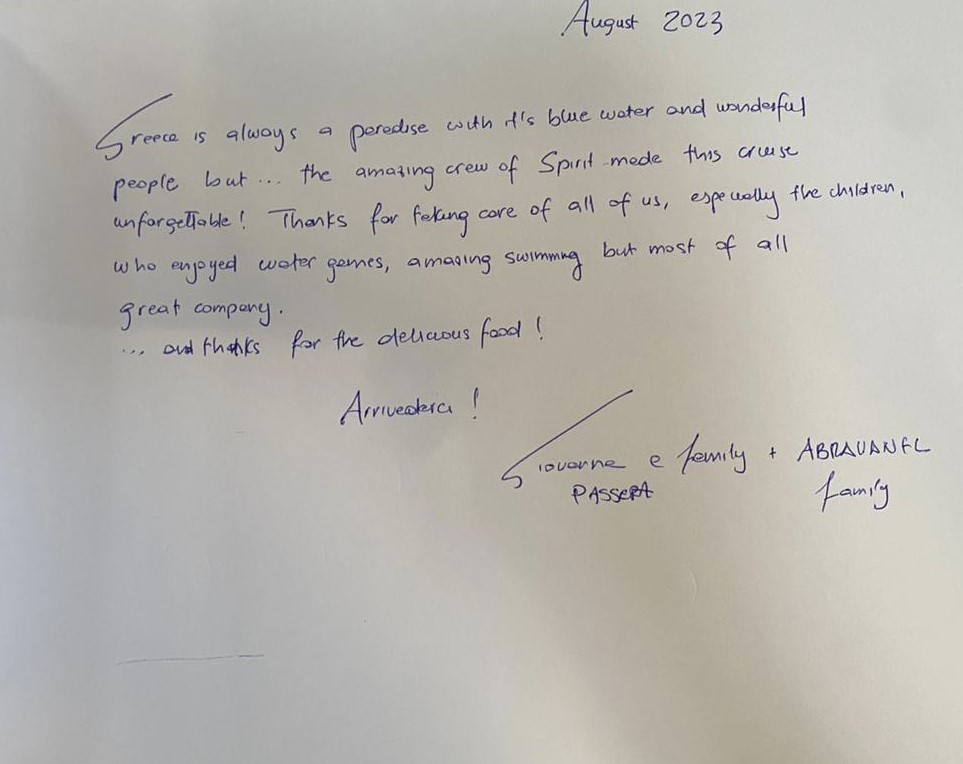 August 2023
Greece is always a paradise with it's blue water and wonderful
people but... the amazing crew of Spirit made this cruise
unforgettable! Thanks for taking care of all of us, especially the children,
who enjoyed water games, amazing swimming but most of all
great company.
... and thanks for the delicious food!
Arrivederci!
Giovanna e family + ABRAVANEL
PASSERA family